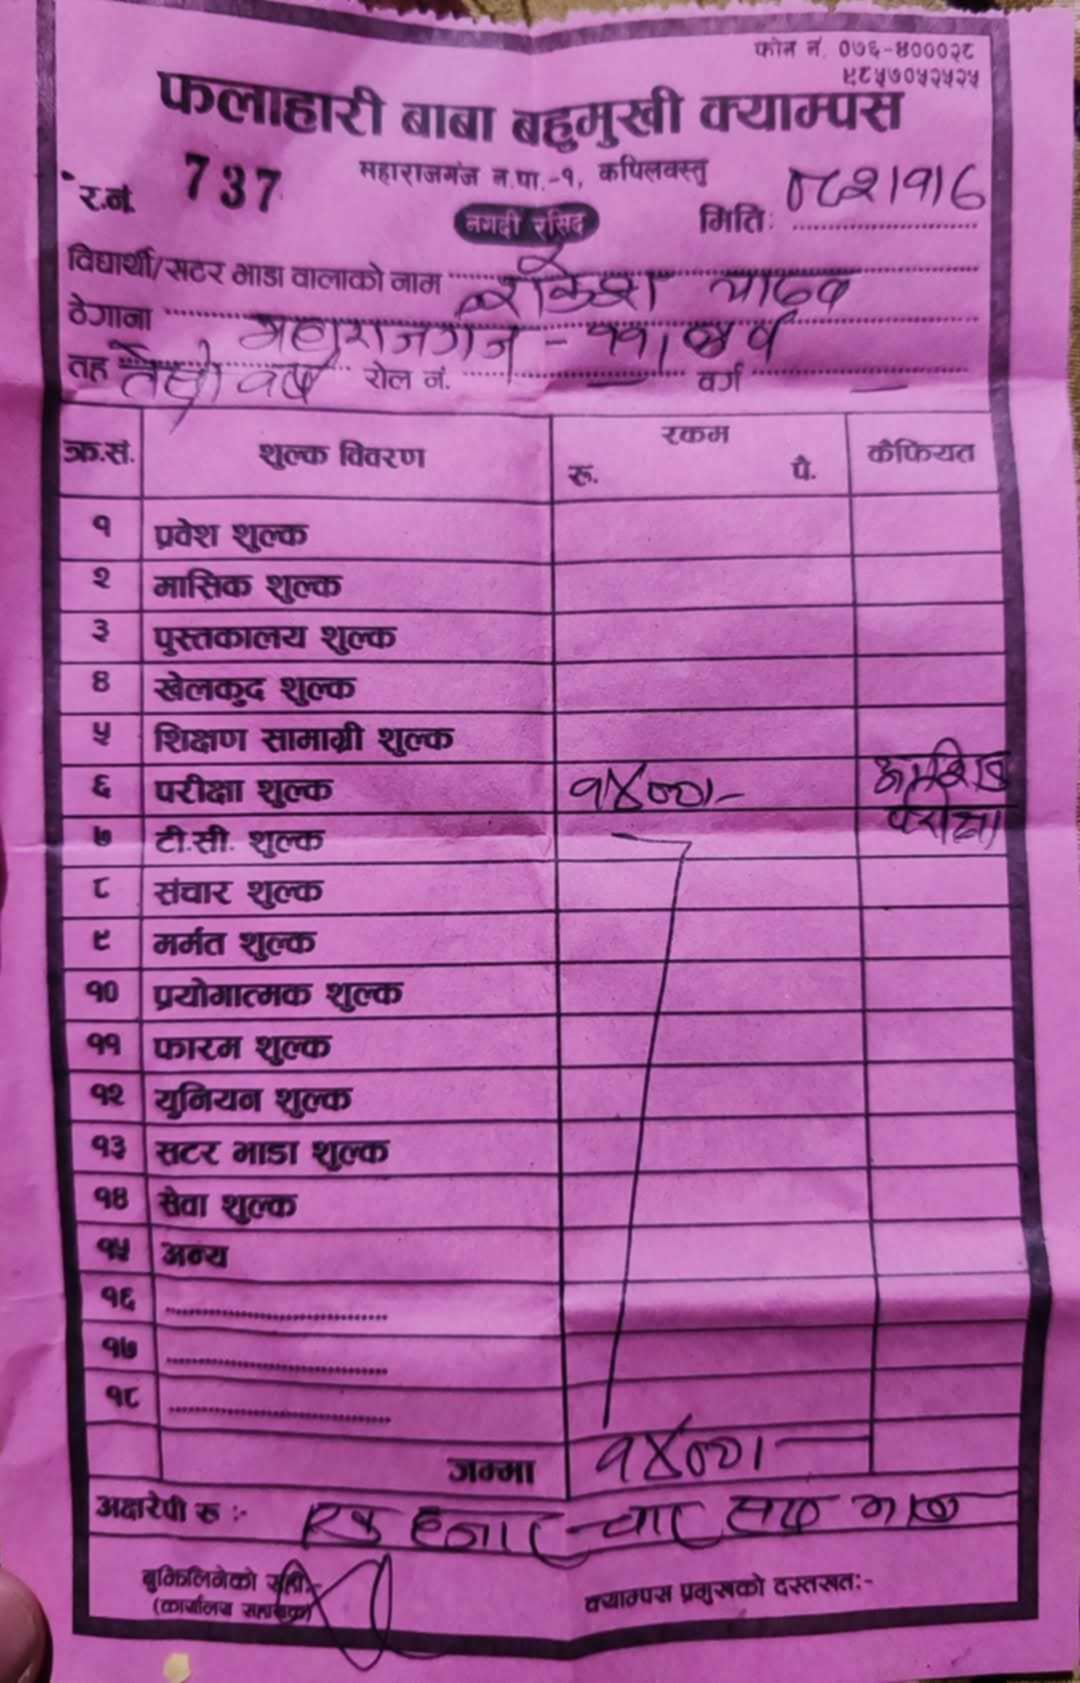 फोन नं. ०७६-४०००२८
९८५७०५२५२५
फलाहारी बाबा बहुमुखी क्याम्पस
महाराजगंज न.पा.-१, कपिलवस्तु
र.नं. 737
नगदी रसिद
मितिः ०८२।९।६
विद्यार्थी/सटर भाडा वालाको नाम राकेश यादव
ठेगाना महाराजगंज - ११।
तह तेस्रो वर्ष रोल नं. — वर्ग —
क्र.सं. शुल्क विवरण रकम रू. पै. कैफियत
१ प्रवेश शुल्क
२ मासिक शुल्क
३ पुस्तकालय शुल्क
४ खेलकुद शुल्क
५ शिक्षण सामाग्री शुल्क
६ परीक्षा शुल्क १४००।- आन्तरिक परीक्षा
७ टी.सी. शुल्क
८ संचार शुल्क
९ मर्मत शुल्क
१० प्रयोगात्मक शुल्क
११ फारम शुल्क
१२ युनियन शुल्क
१३ सटर भाडा शुल्क
१४ सेवा शुल्क
१५ अन्य
१६
१७
१८
जम्मा १४००।—
अक्षरेपी रू :- एक हजार चार सय मात्र
बुझिलिनेको सही:- क्याम्पस प्रमुखको दस्तखत:-
(कार्यालय सहायक)